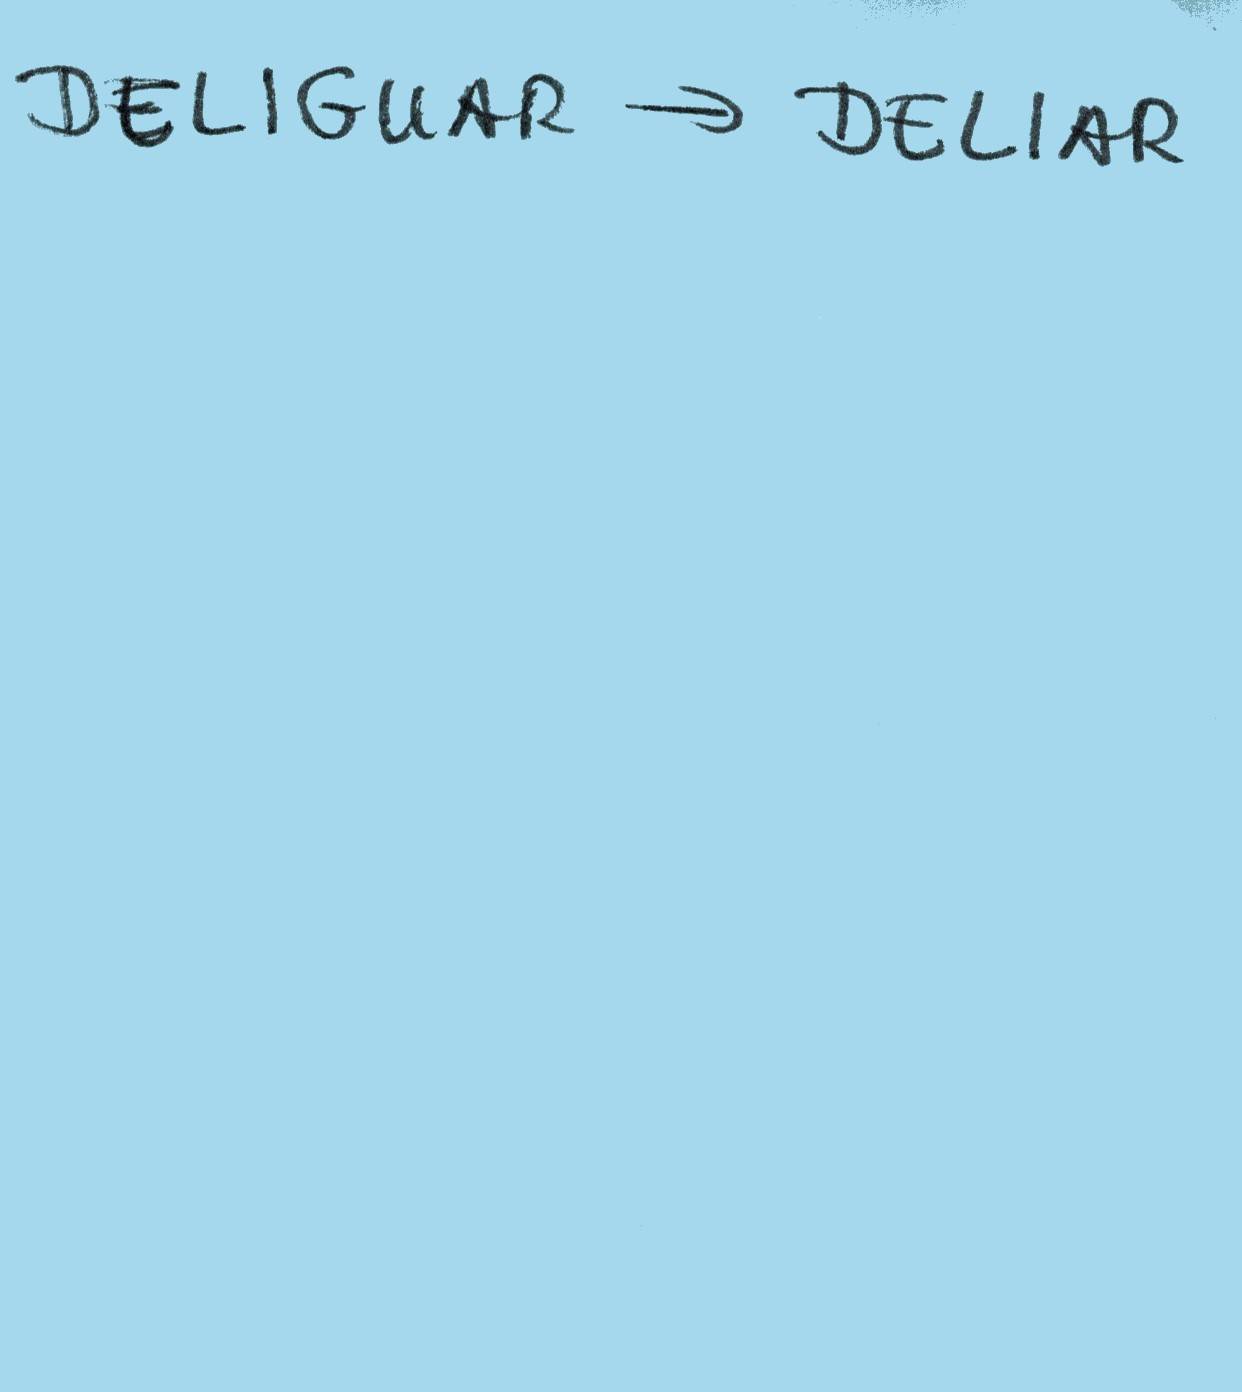 DELIGUAR → DELIAR